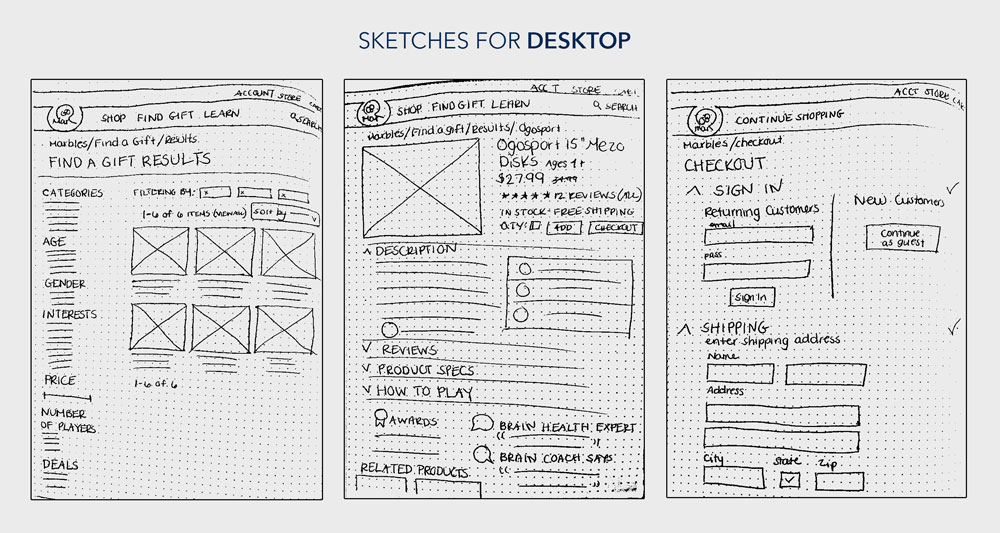 SKETCHES FOR DESKTOP
ACCOUNT STORE
Mar
SHOP FIND GIFT LEARN
SEARCH
Marbles/Find a Gift/Results
FIND A GIFT RESULTS
CATEGORIES
AGE
GENDER
INTERESTS
PRICE
NUMBER
OF PLAYERS
DEALS
FILTERING BY: x x x
1-6 of 6 ITEMS (VIEW ALL) SORT by
1-6 of 6
ACCT STORE
Mar
SHOP FIND GIFT LEARN
SEARCH
Marbles/Find a gift/Results/Ogosport
Ogosport 15" Mezo
Disks Ages 1+
$27.99 34.99
12 REVIEWS (ALL)
IN STOCK - FREE SHIPPING
QTY: ADD CHECKOUT
DESCRIPTION
REVIEWS
PRODUCT SPECS
HOW TO PLAY
AWARDS
BRAIN HEALTH EXPERT
BRAIN COACH SAYS
RELATED PRODUCTS
ACCT STORE
Mar
CONTINUE SHOPPING
Marbles/checkout
CHECKOUT
SIGN IN
Returning Customers
email
pass
Sign In
New Customers
Continue
as guest
SHIPPING
enter shipping address
Name
Address
City State Zip